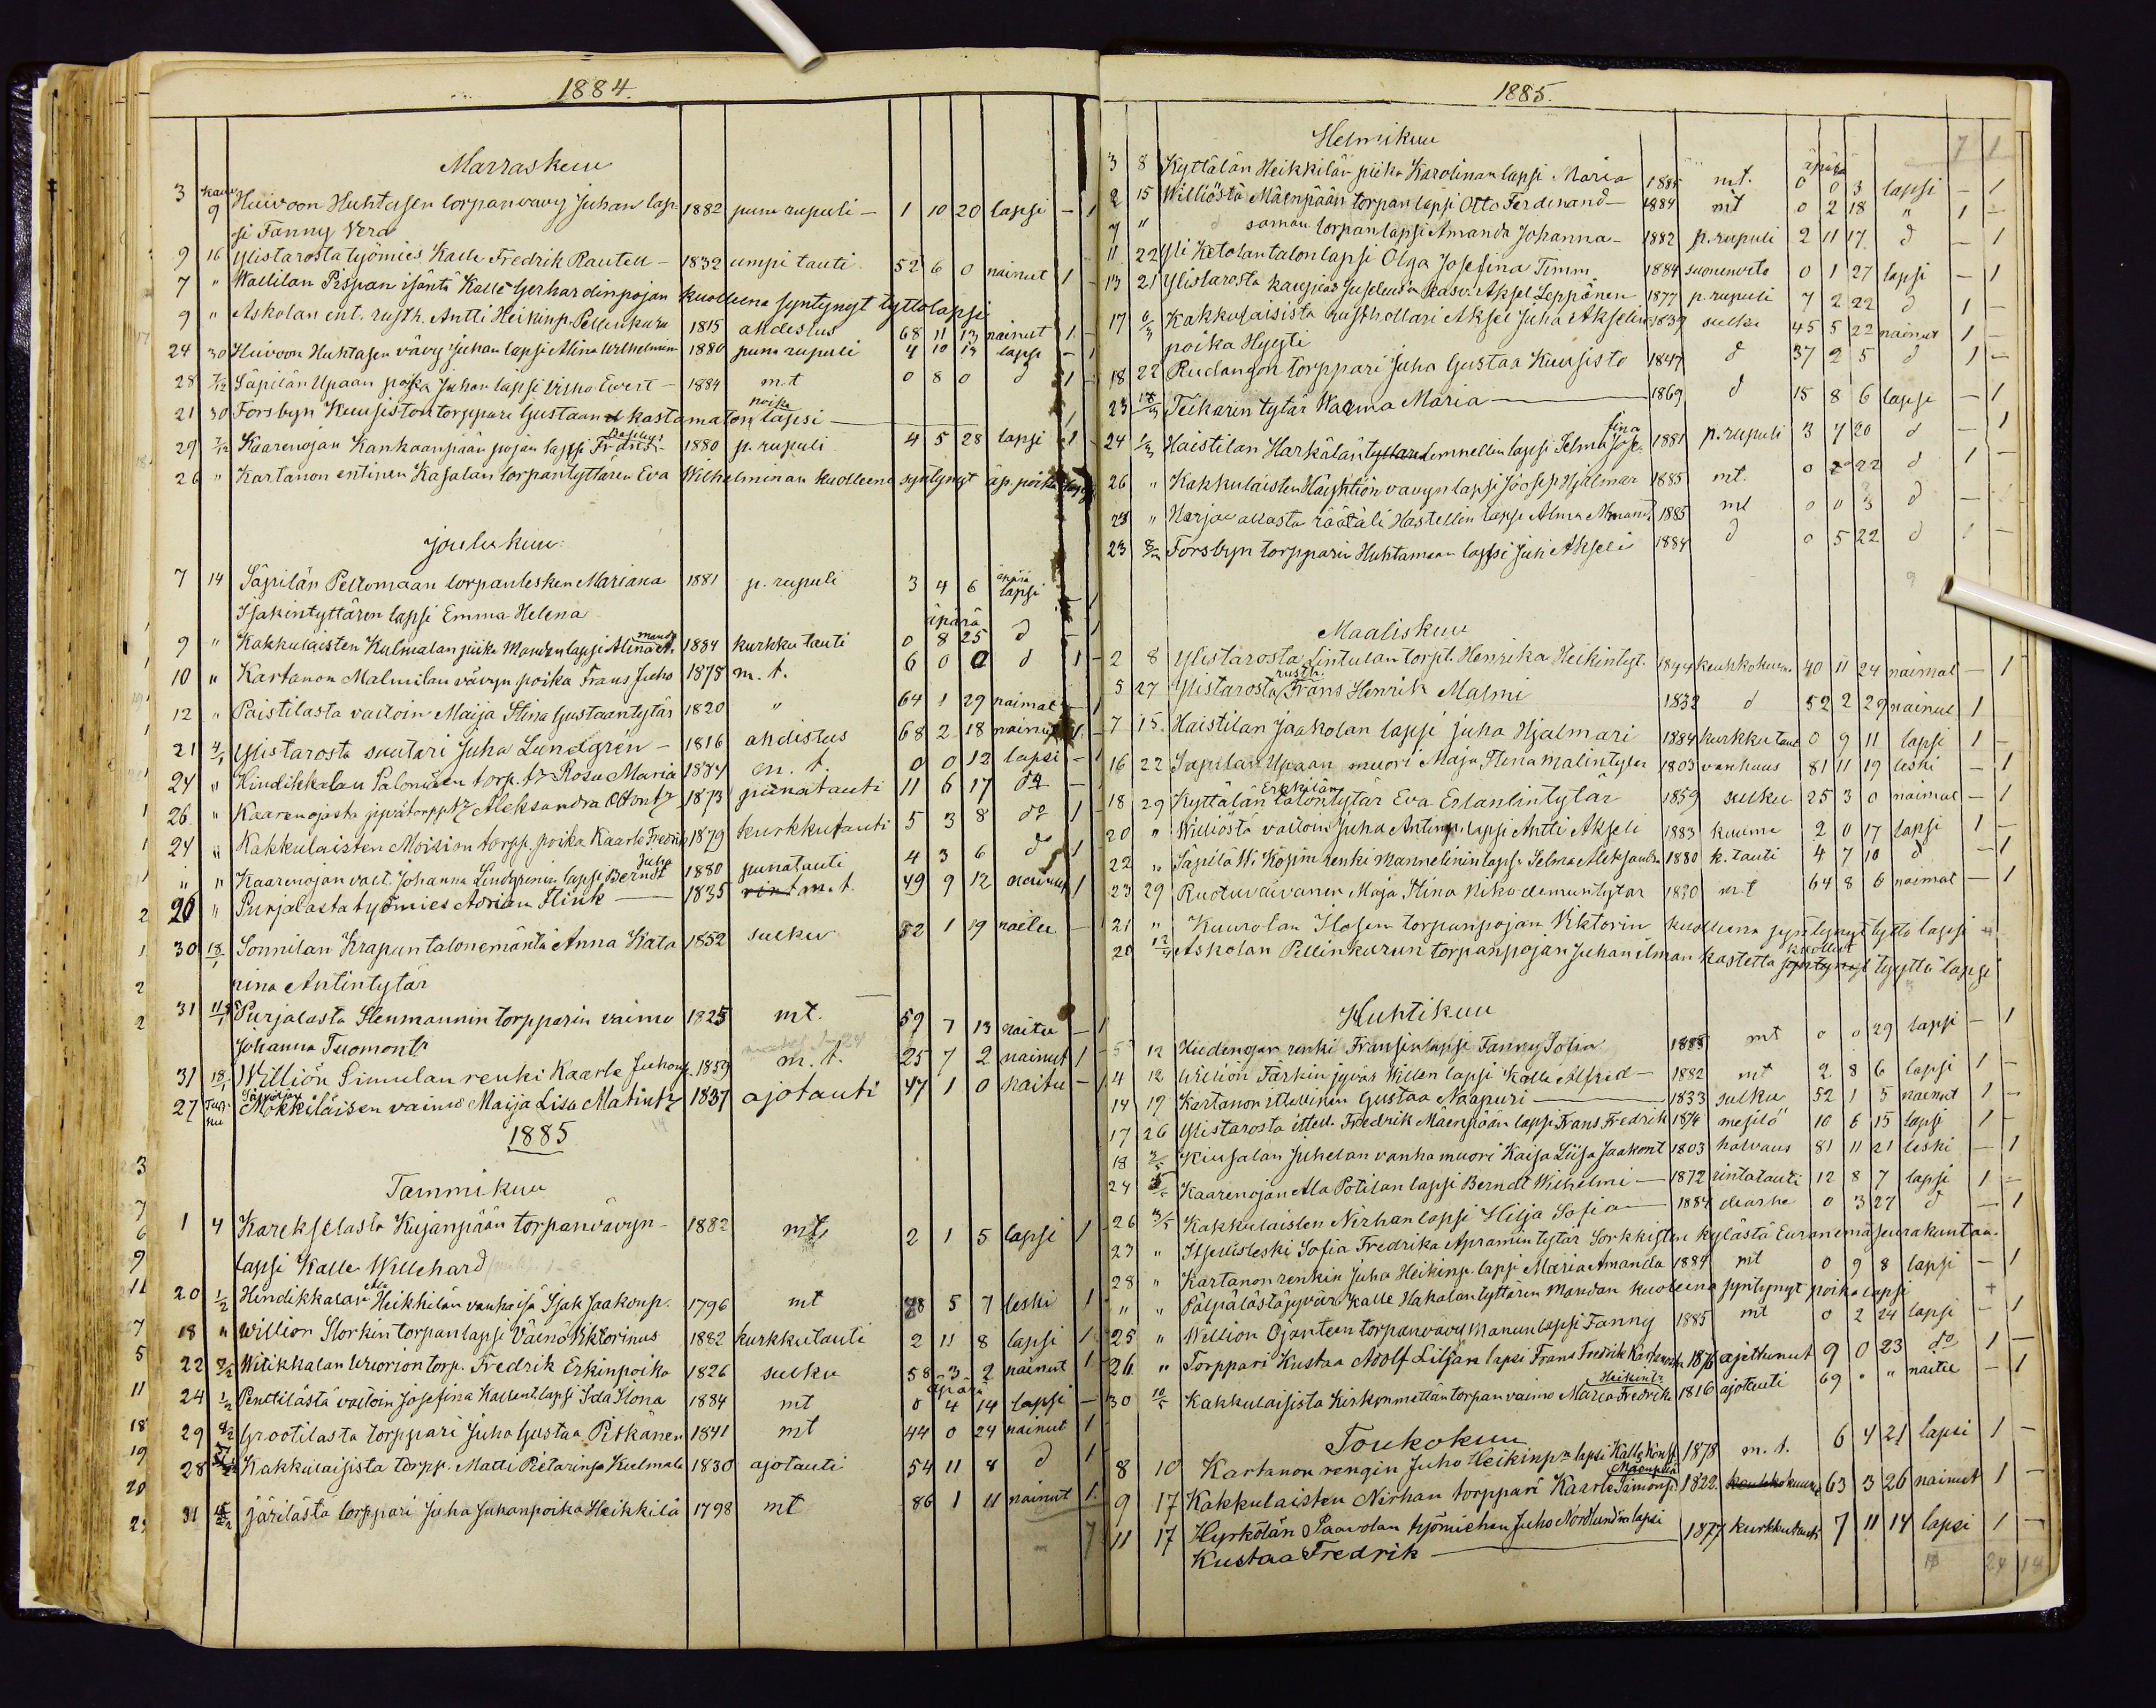 1884.
Marraskuu
3 9 Huivoon Huhtasen torpanvävy Juhan lap- 1882 puna rupuli - 1 10 20 lapsi - 1
si Fanny Vera
9 16 Ylistarosta työmies Kalle Fredrik Rautell - 1832 umpi tauti 52 6 0 nainut 1 -
7 " Wallilan Pispan isäntä Kalle Gerhardinpojan kuolleena syntynyt tyttölapsi
9 " Askolan ent. rusth. Antti Heikinp. Pellinkuru 1815 ahdistus 68 11 13 nainut 1 -
24 30 Huivoon Huhtasen vävy Juhan lapsi Alina Wilhelmin 1880 puna rupuli 4 10 13 lapsi - 1
28 7/12 Säpilän Upaan poika Juhan lapsi Evert - 1884 m.t 0 8 0 d 1 -
21 30 Forsbyn Kuusiston torppari Gustaan kastamaton poika lapsi
29 7/12 Kaarenojan Kankaanpään pojan lapsi Frans 1880 p. rupuli 4 5 28 lapsi 1 -
26 " Kartanon entinen Kasalan torpantyttären Eva Wilhelminan kuolleena syntynyt äp. poika lapsi
Joulukuu
7 14 Säpilän Peltomaan torpanlesken Mariana 1881 p. rupuli 3 4 6 äpärä lapsi - 1
Isakintyttären lapsi Emma Helena
äpärä
9 " Kakkulaisten Kulmalan piika Mandan lapsi Alina A. manda 1884 kurkku tauti 0 8 25 d - 1
10 " Kartanon Malmilan vävyn poika Frans Juho 1878 m. t. 6 0 0 d 1 -
12 " Paistilasta vailoin Maija Stina Gustaantytär 1820 " 64 1 29 naimat - 1
21 4/1 Ylistarosta suutari Juha Lundgrén - 1816 ahdistus 68 2 18 nainut 1 -
24 " Hindikkalan Palomäen torp. tr Rosa Maria 1884 m. t. 0 0 12 lapsi - 1
26 " Kaarenojasta Aleksandra Ottontr 1873 punatauti 11 6 17 do -
24 " Kakkulaisten Moision torpp. poika Kaarle Fredrik 1879 kurkkutauti 5 3 8 do 1
" " Kaarenojan vaet. Johanna Lindgrenin lapsi Juha Berndt 1880 punatauti 4 3 6 d 1
26 " Purjalasta työmies Adrian Flink 1835 m. t. 49 9 12 nainut 1
30 18/1 Sonnilan Krapun talonemäntä Anna Kata 1852 sulku 32 1 19 naitu - 1
rina Antintytär
31 11/1 Purjalasta Stenmannin torpparin vaimo 1825 mt. 59 7 13 naitu - 1
Johanna Tuomontr
31 18/1 Williön Simulan renki Kaarle Juhonp. 1859 m. t. 25 7 2 nainut 1 -
27 Mokkiläisen vaimo Maija Lisa Matintr 1837 ajotauti 47 1 0 naitu - 1
1885
Tammikuu
1 4 Karekselasta Kujanpään torpanvävyn- 1882 mt, 2 1 5 lapsi 1
lapsi Kalle Willehard
20 1/2 Hindikkalan Ala Heikkilän vanhaisä Isak Jaakonp. 1796 mt 88 5 7 leski 1
18 " Williön Storkin torpanlapsi Väinö Viktorinus 1882 kurkkutauti 2 11 8 lapsi 1
22 Witikkalan torp. Fredrik Erkinpoika 1826 sulku 58 3 2 nainut 1
äpärä
24 1/2 Penttilästä vailoin Josefina Kallent. lapsi Ida Ilona 1884 mt 0 4 14 lapsi -
29 8/2 Grootilasta torppari Juha Gustaa Pitkänen 1841 mt 44 0 24 nainut 1
28 Kakkulaisista torpp. Matti Pietarinp. Kulmala 1830 ajotauti 54 11 8 d 1
31 15/2 Järilästä torppari Juha Juhanpoika Heikkilä 1798 mt 86 1 11 nainut 1
7
1885.
Helmikuu
7 1
äpärä
3 8 Kyttälän Heikkilän piika Karolinan lapsi Maria 1885 mt. 0 0 3 lapsi - 1
2 15 Williöstä Mäenpään torpan lapsi Otto Ferdinand - 1884 mt 0 2 18 " 1 -
7 " saman torpanlapsi Amanda Johanna - 1882 p. rupuli 2 11 17 d - 1
11 22 Yli Ketolantalon lapsi Olga Josefina Timm 1884 suonenveto 0 1 27 lapsi - 1
13 21 Ylistarosta kasv. Aksel Leppänen 1877 p. rupuli 7 2 22 d 1 -
17 6/3 Kakkulaisista rusthollari Aksel Juha Akselin- 1839 sulku 45 5 22 nainut 1 -
poika Hyyti
18 22 Rudangon torppari Juha Gustaa Kuusisto 1847 d 37 2 5 d 1 -
23 Teikarin tytär Wauma Maria 1869 d 15 8 6 lapsi - 1
24 1/3 Haistilan Harkälän lapsi Selma Jose- fina 1881 p. rupuli 3 7 20 d - 1
26 " Kakkulaisten vävyn lapsi Joosep Hjalmar 1885 mt. 0 22 d 1 -
23 " räätäli Hastellin lapsi Alma Amand. 1885 mt 0 0 3 d -
23 8/3 Forsbyn torpparin Huhtamaan lapsi Juh. Akseli 1884 d 0 5 22 d 1 -
9
Maaliskuu
2 8 Ylistarosta Lintulan torpt. Henrika Heikintyt. 1844 keuhkokuu. 40 11 24 naimat - 1
5 27 Ylistarosta rusth. Frans Henrik Malmi 1832 d 52 2 29 nainut 1
7 15 Haistilan Jaakolan lapsi Juha Hjalmari 1884 kurkku taut 0 9 11 lapsi 1 -
16 22 Säpilän Upaan muori Maja Stena Malintytär 1803 vanhuus 81 11 19 leski - 1
18 29 Kyttälän Erkkilän talontytär Eva Erlantintytär 1859 sulku 25 3 0 naimat - 1
20 " Williöstä vailoin Juha Antinp. lapsi Antti Akseli 1883 kuume 2 0 17 lapsi 1 -
22 " Säpilä renki Mannelinin lapsi Selma Aleksandra 1880 k. tauti 4 7 10 d - 1
23 29 Ruotuvaivanen Maja Stina Nikodemuntytär 1820 mt 64 8 6 naimat - 1
21 " Kuurolan Ilosen torpanpojan Viktorin kuolleena syntynyt tyttö lapsi +
20 12/4 Askolan Pellinkurun torpanpojan Juhan ilman kastetta kuollut tyyttä lapsi
Huhtikuu
5 12 Hiedenojan renki Fransin lapsi Fanny Sofia 1885 mt 0 0 29 lapsi - 1
4 12 Williön Färkin Willen lapsi Kalle Alfred - 1882 mt 2 8 6 lapsi 1 -
14 19 Kartanon itsellinen Gustaa Naapuri 1833 sulku 52 1 5 nainut 1 -
17 26 Ylistarosta itsell. Fredrik Mäenpään lapsi Frans Fredrik 1874 10 6 15 lapsi 1 -
18 Kiusalan Juhelan vanhamuori Kaisa Liisa Jaakont 1803 halvaus 81 11 21 leski - 1
24 Kaarenojan Ala Potilan lapsi Berndt Wilhelmi - 1872 rintatauti 12 8 7 lapsi 1 -
26 3/5 Kakkulaisten Nirhan lapsi Hilja Sofia 1884 0 3 27 d - 1
23 " Itsellisleski Sofia Fredrika Apramintytär Sorkkisten kylästä Euran emäseurakuntaa.
28 " Kartanon renkin Juha Heikinp. lapsi Maria Amanda 1884 mt 0 9 8 lapsi - 1
" " Kalle Hakalan tyttären Mandan kuolleena syntynyt poika lapsi +
25 " Williön Ojanteen torpanvävy Manun lapsi Fanny 1885 mt 0 2 24 lapsi - 1
26 " Torppari Kustaa Adolf Liljan lapsi Frans Fredrik Kartanosta 1876 ajettunut 9 0 23 do 1 -
30 10/5 Kakkulaisista Kirkonmettän torpanvaimo Maria Fredrika Heikintr 1816 ajotauti 69 " " naitu - 1
Toukokuu
8 10 Kartanon rengin Juho Heikinp:n lapsi Kalle Konst. 1878 m. t. 6 4 21 lapsi 1 -
9 17 Kakkulaisten Nirhan torppari Kaarle Simonp. Mäenpää 1822. keuhkokuume 63 3 26 nainut 1 -
11 17 Hyrkölän Paavolan työmiehen Juho Nordlundin lapsi 1877 kurkkutauti 7 11 14 lapsi 1 -
Kustaa Fredrik
24 18